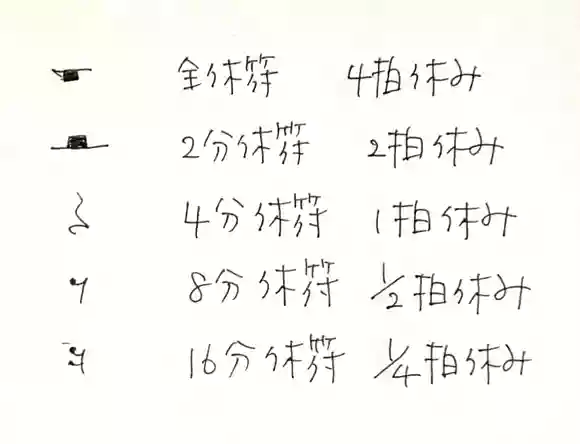 全休符 4拍休み
2分休符 2拍休み
4分休符 1拍休み
8分休符 1/2拍休み
16分休符 1/4拍休み